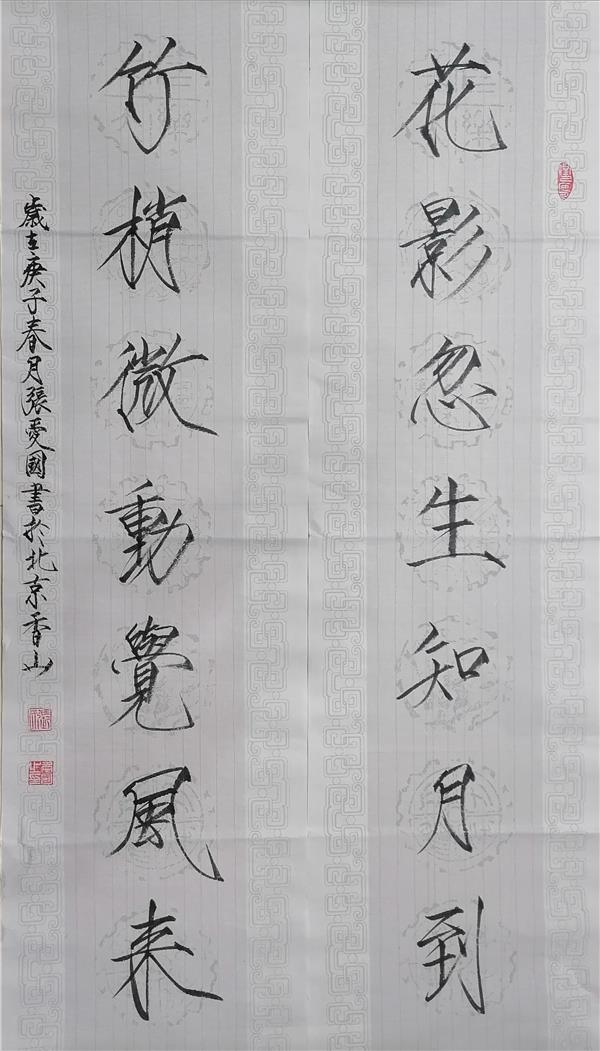 花影忽生知月到
竹梢微動覺風来
歲在庚子春月張愛國書於北京香山